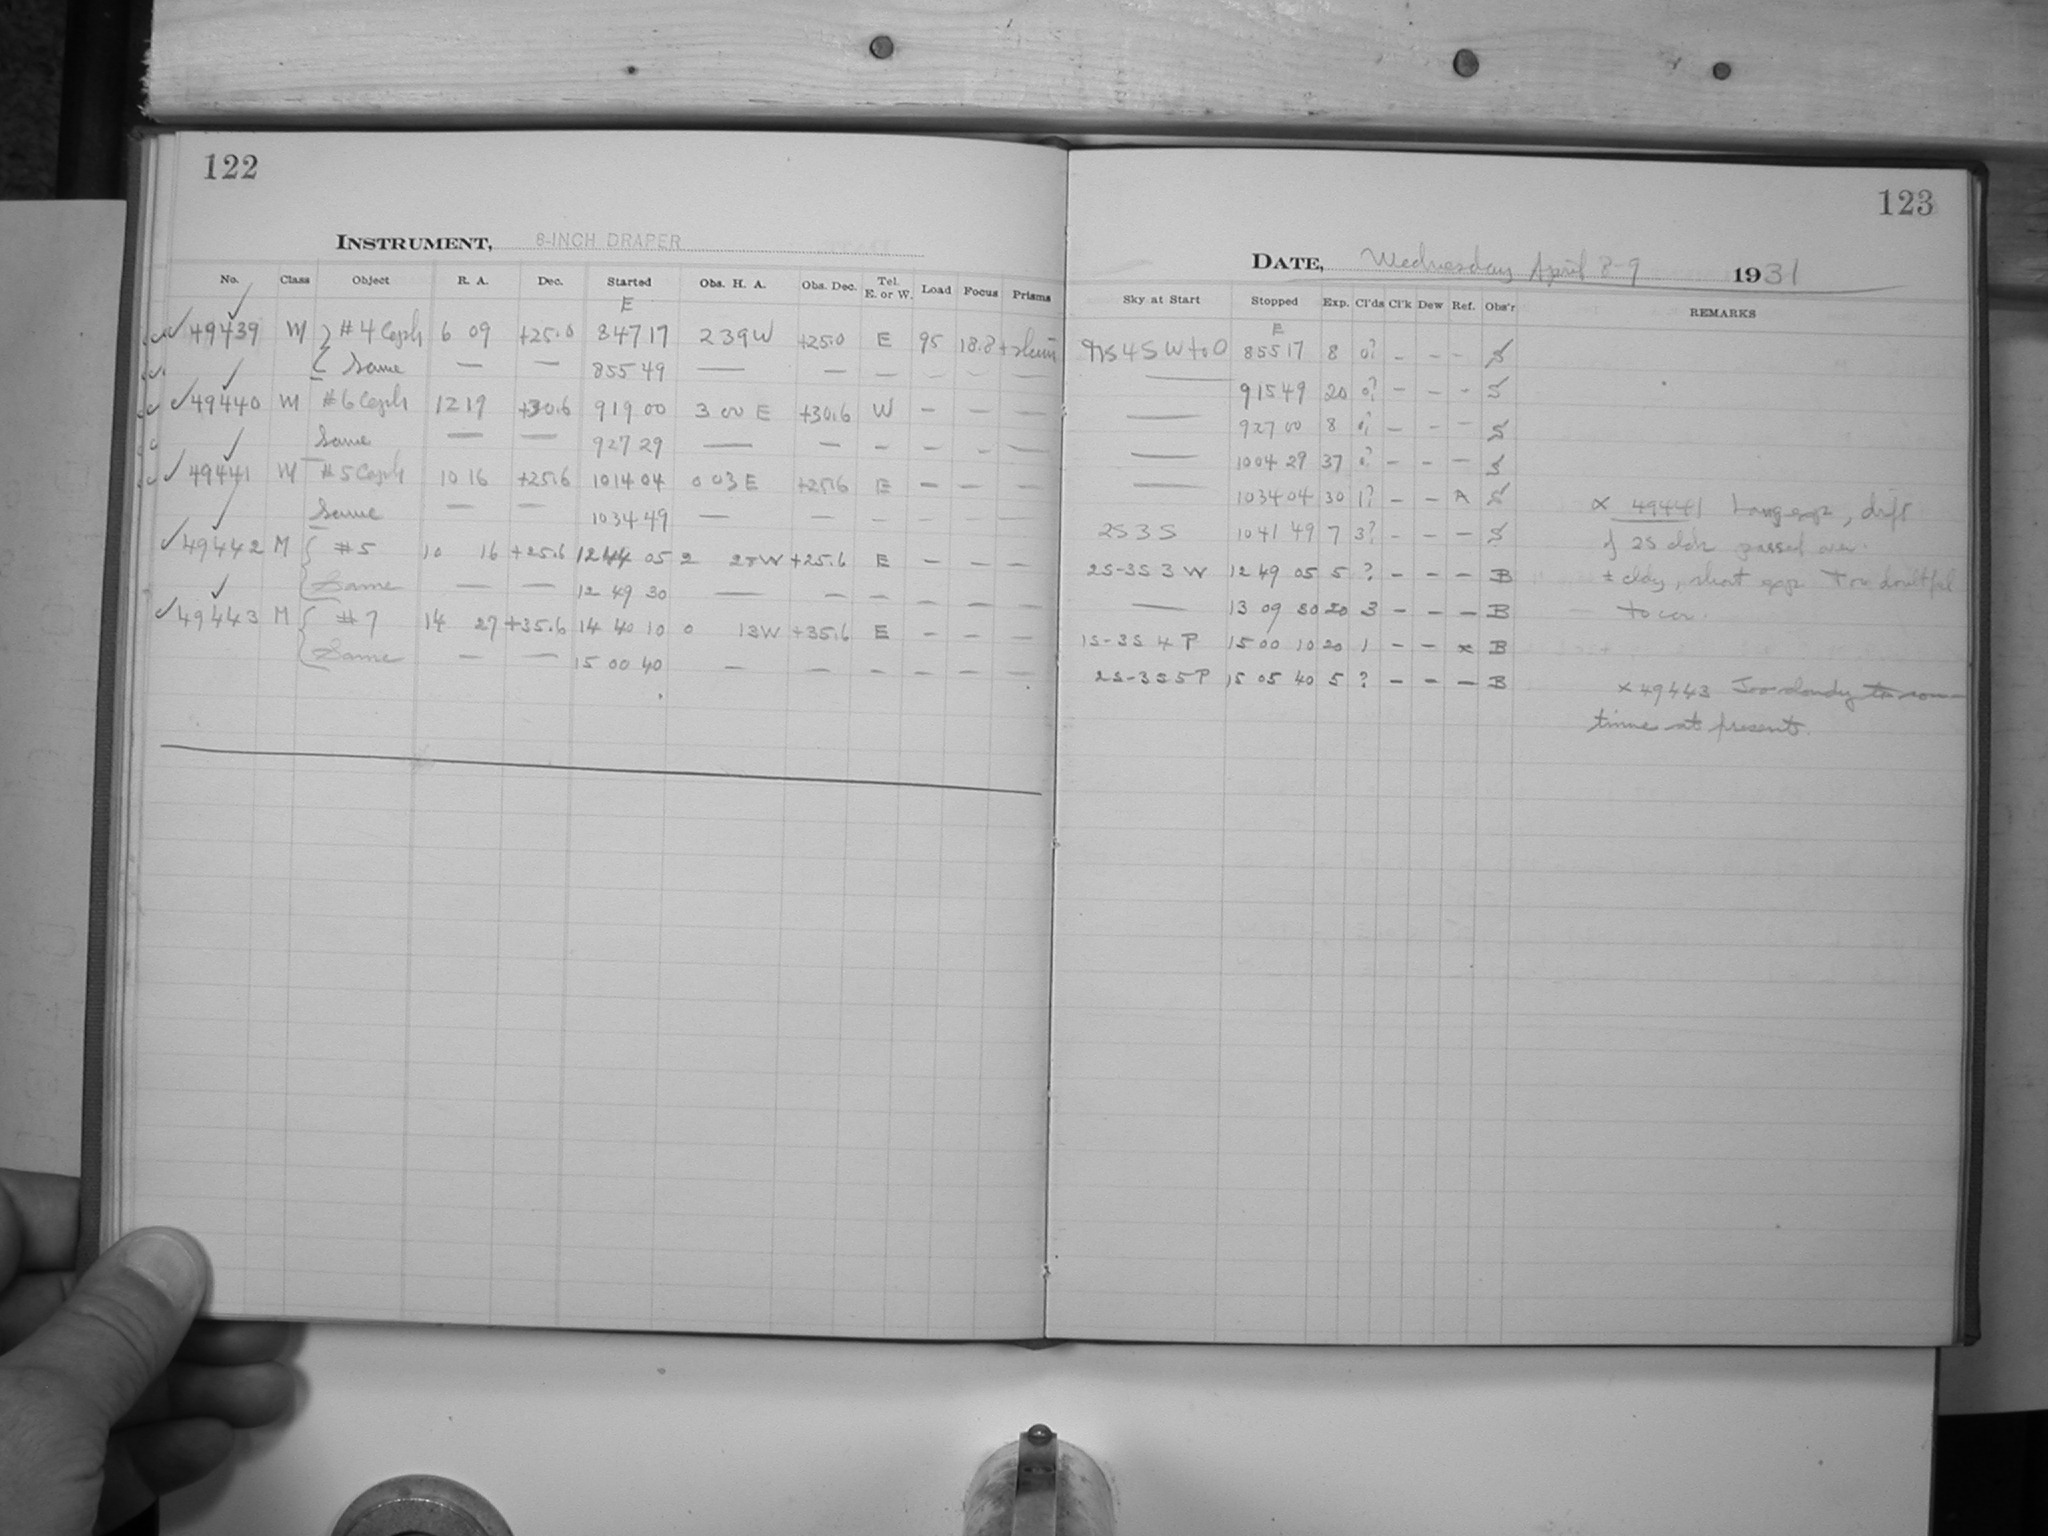 122
INSTRUMENT, 8-INCH DRAPER
No. Class Object R. A. Dec. Started Obs. H. A. Obs. Dec. Tel. E. or W. Load Focus Prisms
E
49439 M #4 Ceph 6 09 +25.0 8 47 17 2 39 W +25.0 E 95 18.8
Same — — 8 55 49 — — — — — —
49440 M #6 Ceph 12 19 +30.6 9 19 00 3 00 E +30.6 W — — —
Same — — 9 27 29 — — — — — —
49441 M #5 Ceph 10 16 +25.6 10 14 04 0 03 E +25.6 E — — —
Same — — 10 34 49 — — — — — —
49442 M #5 10 16 +25.6 12 44 05 2 28 W +25.6 E — — —
Same — — 12 49 30 — — — — — —
49443 M #7 14 27 +35.6 14 40 10 0 13 W +35.6 E — — —
Same — — 15 00 40 — — — — — —
123
DATE, Wednesday April 8-9 1931
Sky at Start Stopped Exp. Cl'ds Cl'k Dew Ref. Obs'r REMARKS
E
4S W to O 8 55 17 8 0? — — — S
— 9 15 49 20 0? — — — S
— 9 27 00 8 0? — — — S
— 10 04 29 37 0? — — — S
— 10 34 04 30 1? — — S
2S 3 S 10 41 49 7 3? — — — S
2S-3S 3 W 12 49 05 5 ? — — — B
— 13 09 30 20 3 — — — B
1S-3S 4 P 15 00 10 20 1 — — x B
2S-3S 5 P 15 05 40 5 ? — — — B
x 49441 Long exp, drift
of 2S clds passed over.
± cldy, short exp Too doubtful
to con.
x 49443 Too cloudy to con-
tinue at present.